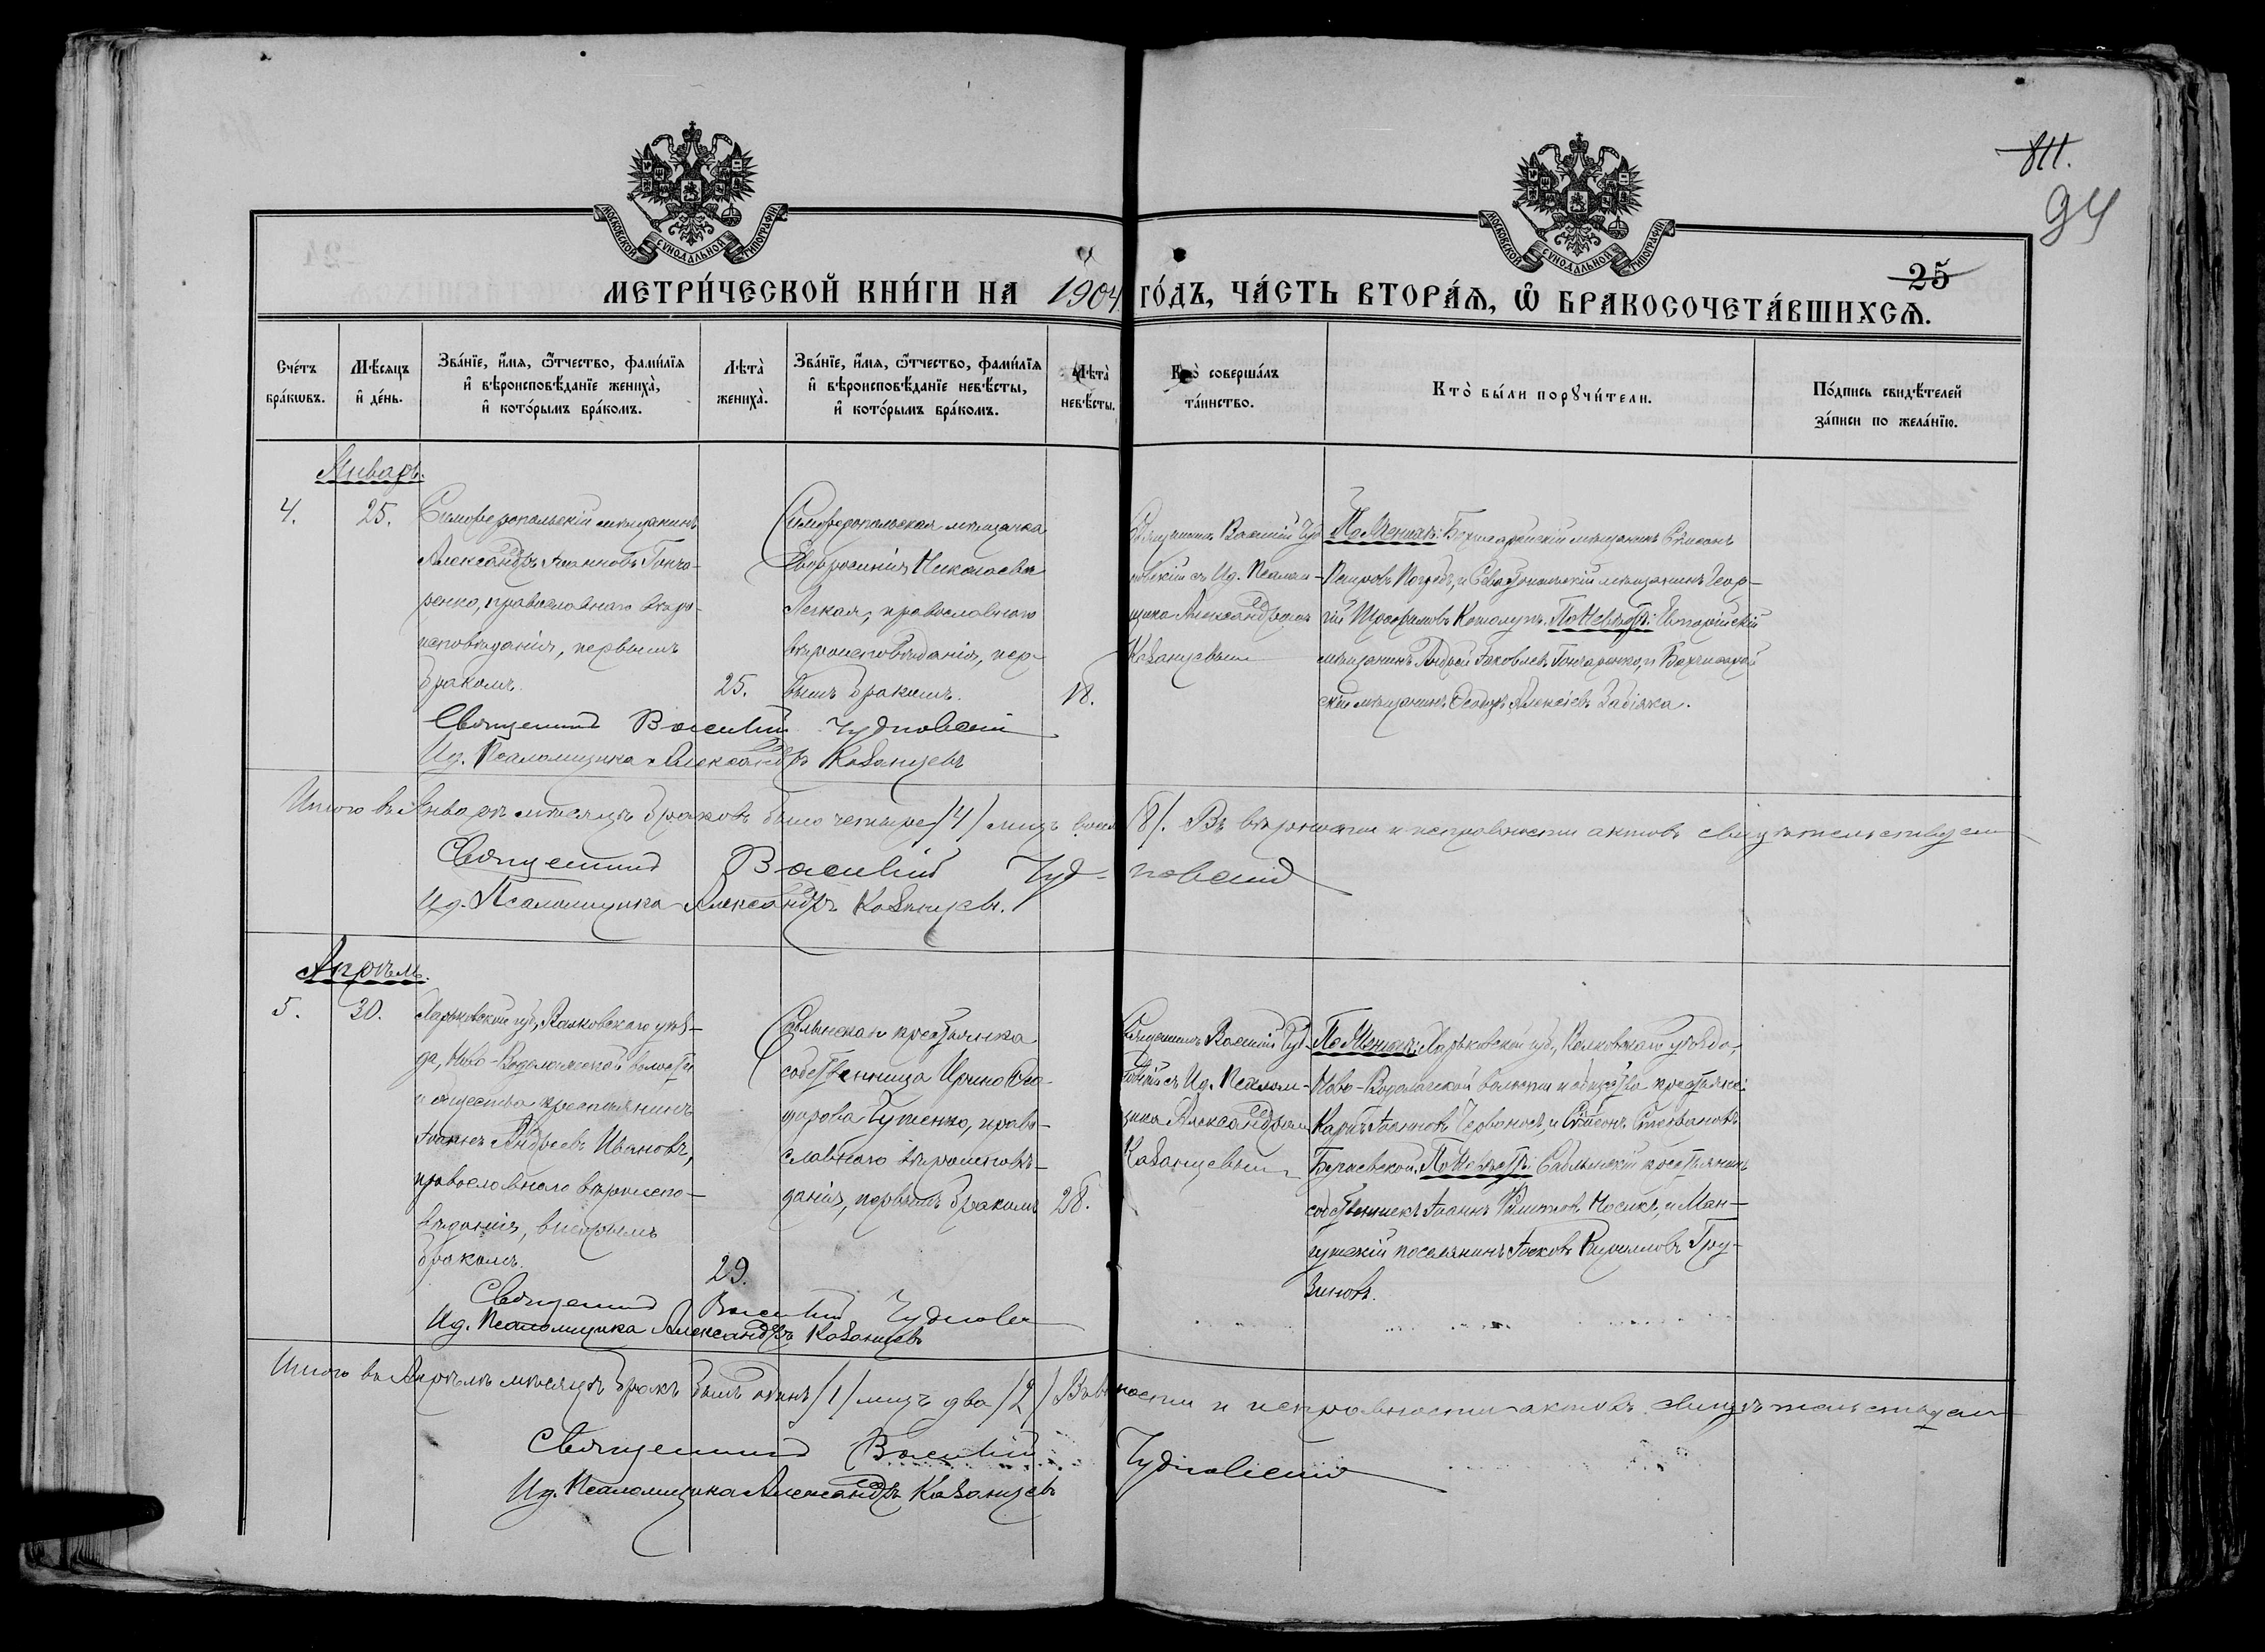 811.
94
25
МОСКОВСКОЙ СѴНОДАЛЬНОЙ ТИПОГРАФІИ
МОСКОВСКОЙ СѴНОДАЛЬНОЙ ТИПОГРАФІИ
МЕТРИ́ЧЕСКОЙ КНИ́ГИ НА 1904 ГО́ДЪ, ЧА́СТЬ ВТОРА́Ѧ, Ѿ БРАКОСОЧЕТА́ВШИХСѦ.
Сче́тъ
бра́кѡвъ.
Мѣ́сяцъ
и҆ де́нь.
Зва́нїе, и҆́мя, ѻ҆́тчество, фами́лїя
и҆ вѣроисповѣ́данїе жениха̀,
и҆ кото́рымъ бра́комъ.
Лѣта̀
жениха̀.
Зва́нїе, и҆́мя, ѻ҆́тчество, фами́лїя
и҆ вѣроисповѣ́данїе невѣ́сты,
и҆ кото́рымъ бра́комъ.
Лѣта̀
невѣ́сты.
Кто̀ соверша́лъ
та́инство.
Кто̀ бы́ли порꙋчи́тели.
По́дпись свидѣ́телей
за́писи по жела́нїю.
Январь.
4.
25.
Симферопольскій мѣщанинъ
Александръ Іоанновъ Гонча-
ренко, православнаго вѣро-
исповѣданія, первымъ
бракомъ.
25.
Симферопольская мѣщанка
Евфросинія Николаева
Легкая, православнаго
вѣроисповѣданія, пер-
вымъ бракомъ.
18.
Священникъ Василій Чуд
новскій съ Ид. Псалом-
щика Александромъ
Казанцевымъ
По Женихѣ: Бахчисарайскій мѣщанинъ Сѵмеонъ
Петровъ и Севастопольскій мѣщанинъ Геор-
гій Трофимовъ. По Невѣстѣ:
мѣщанинъ Андрей Іаковлевъ Гончаренко, и Бахчисарай
скій мѣщанинъ Ѳеодоръ Алексіевъ Забіяка.
Священникъ Василій Чудновскій
Ид. Псаломщика Александръ Казанцевъ
Итого въ Январѣ мѣсяцѣ браковъ было четыре /4/ лицъ восем /8/. Въ вѣрности и исправности актовъ свидѣтельствуемъ
Священникъ Василій Чуд-новскій
Ид. Псаломщика Александръ Казанцевъ.
Апрѣль.
5.
30.
Харьковской губ., Валковского уѣз-
да, Ново-Водолажской волости
и общества крестьянинъ
Іоаннъ Андреевъ Ивановъ,
православнаго вѣроиспо-
вѣданія, вторымъ
бракомъ.
29.
Саблынская крестьянка
собственница Ирина Ѳео-
дорова Бутенко, право-
славнаго вѣроисповѣ-
данія, первымъ бракомъ
28.
Священникъ Василій Чуд-
новскій съ Ид. Псалом-
щика Александромъ
Казанцевымъ
По Женихѣ: Харьковской губ., Валковского уѣзда,
Ново-Водолажской волости и общества крестьяне:
Карпъ Іоанновъ Червоносъ, и Сѵмеонъ Стефановъ
По Невѣстѣ: Саблынскій крестьянинъ
собственникъ Іоаннъ Филиповъ Носикъ, и Ман-
гушскій поселянинъ Іаковъ Кирилловъ Гру-
зиновъ.
Священникъ Василій Чудновск
Ид. Псаломщика Александръ Казанцевъ
Итого въ Апрѣлѣ мѣсяцѣ бракъ былъ одинъ /1/ лицъ два /2/ Въ вѣрности и исправности актовъ свидѣтельствуемъ
Священникъ Василій Чудновскій
Ид. Псаломщика Александръ Казанцевъ